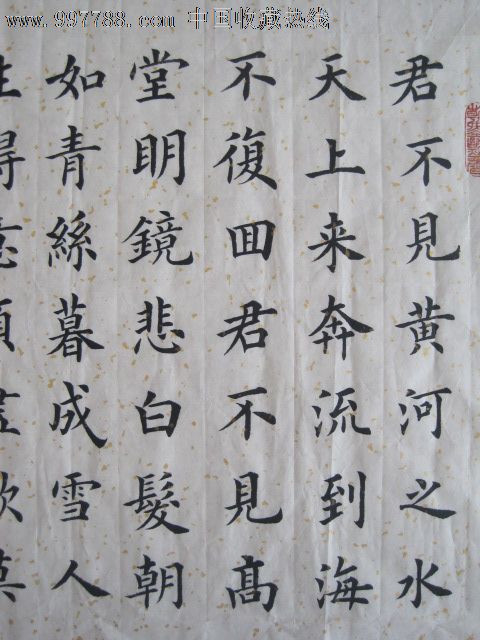 www.997788.com 中国收藏热线
君不見黄河之水
天上来奔流到海
不復回君不見髙
堂明鏡悲白髮朝
如青絲暮成雪人
生得意須盡歡莫